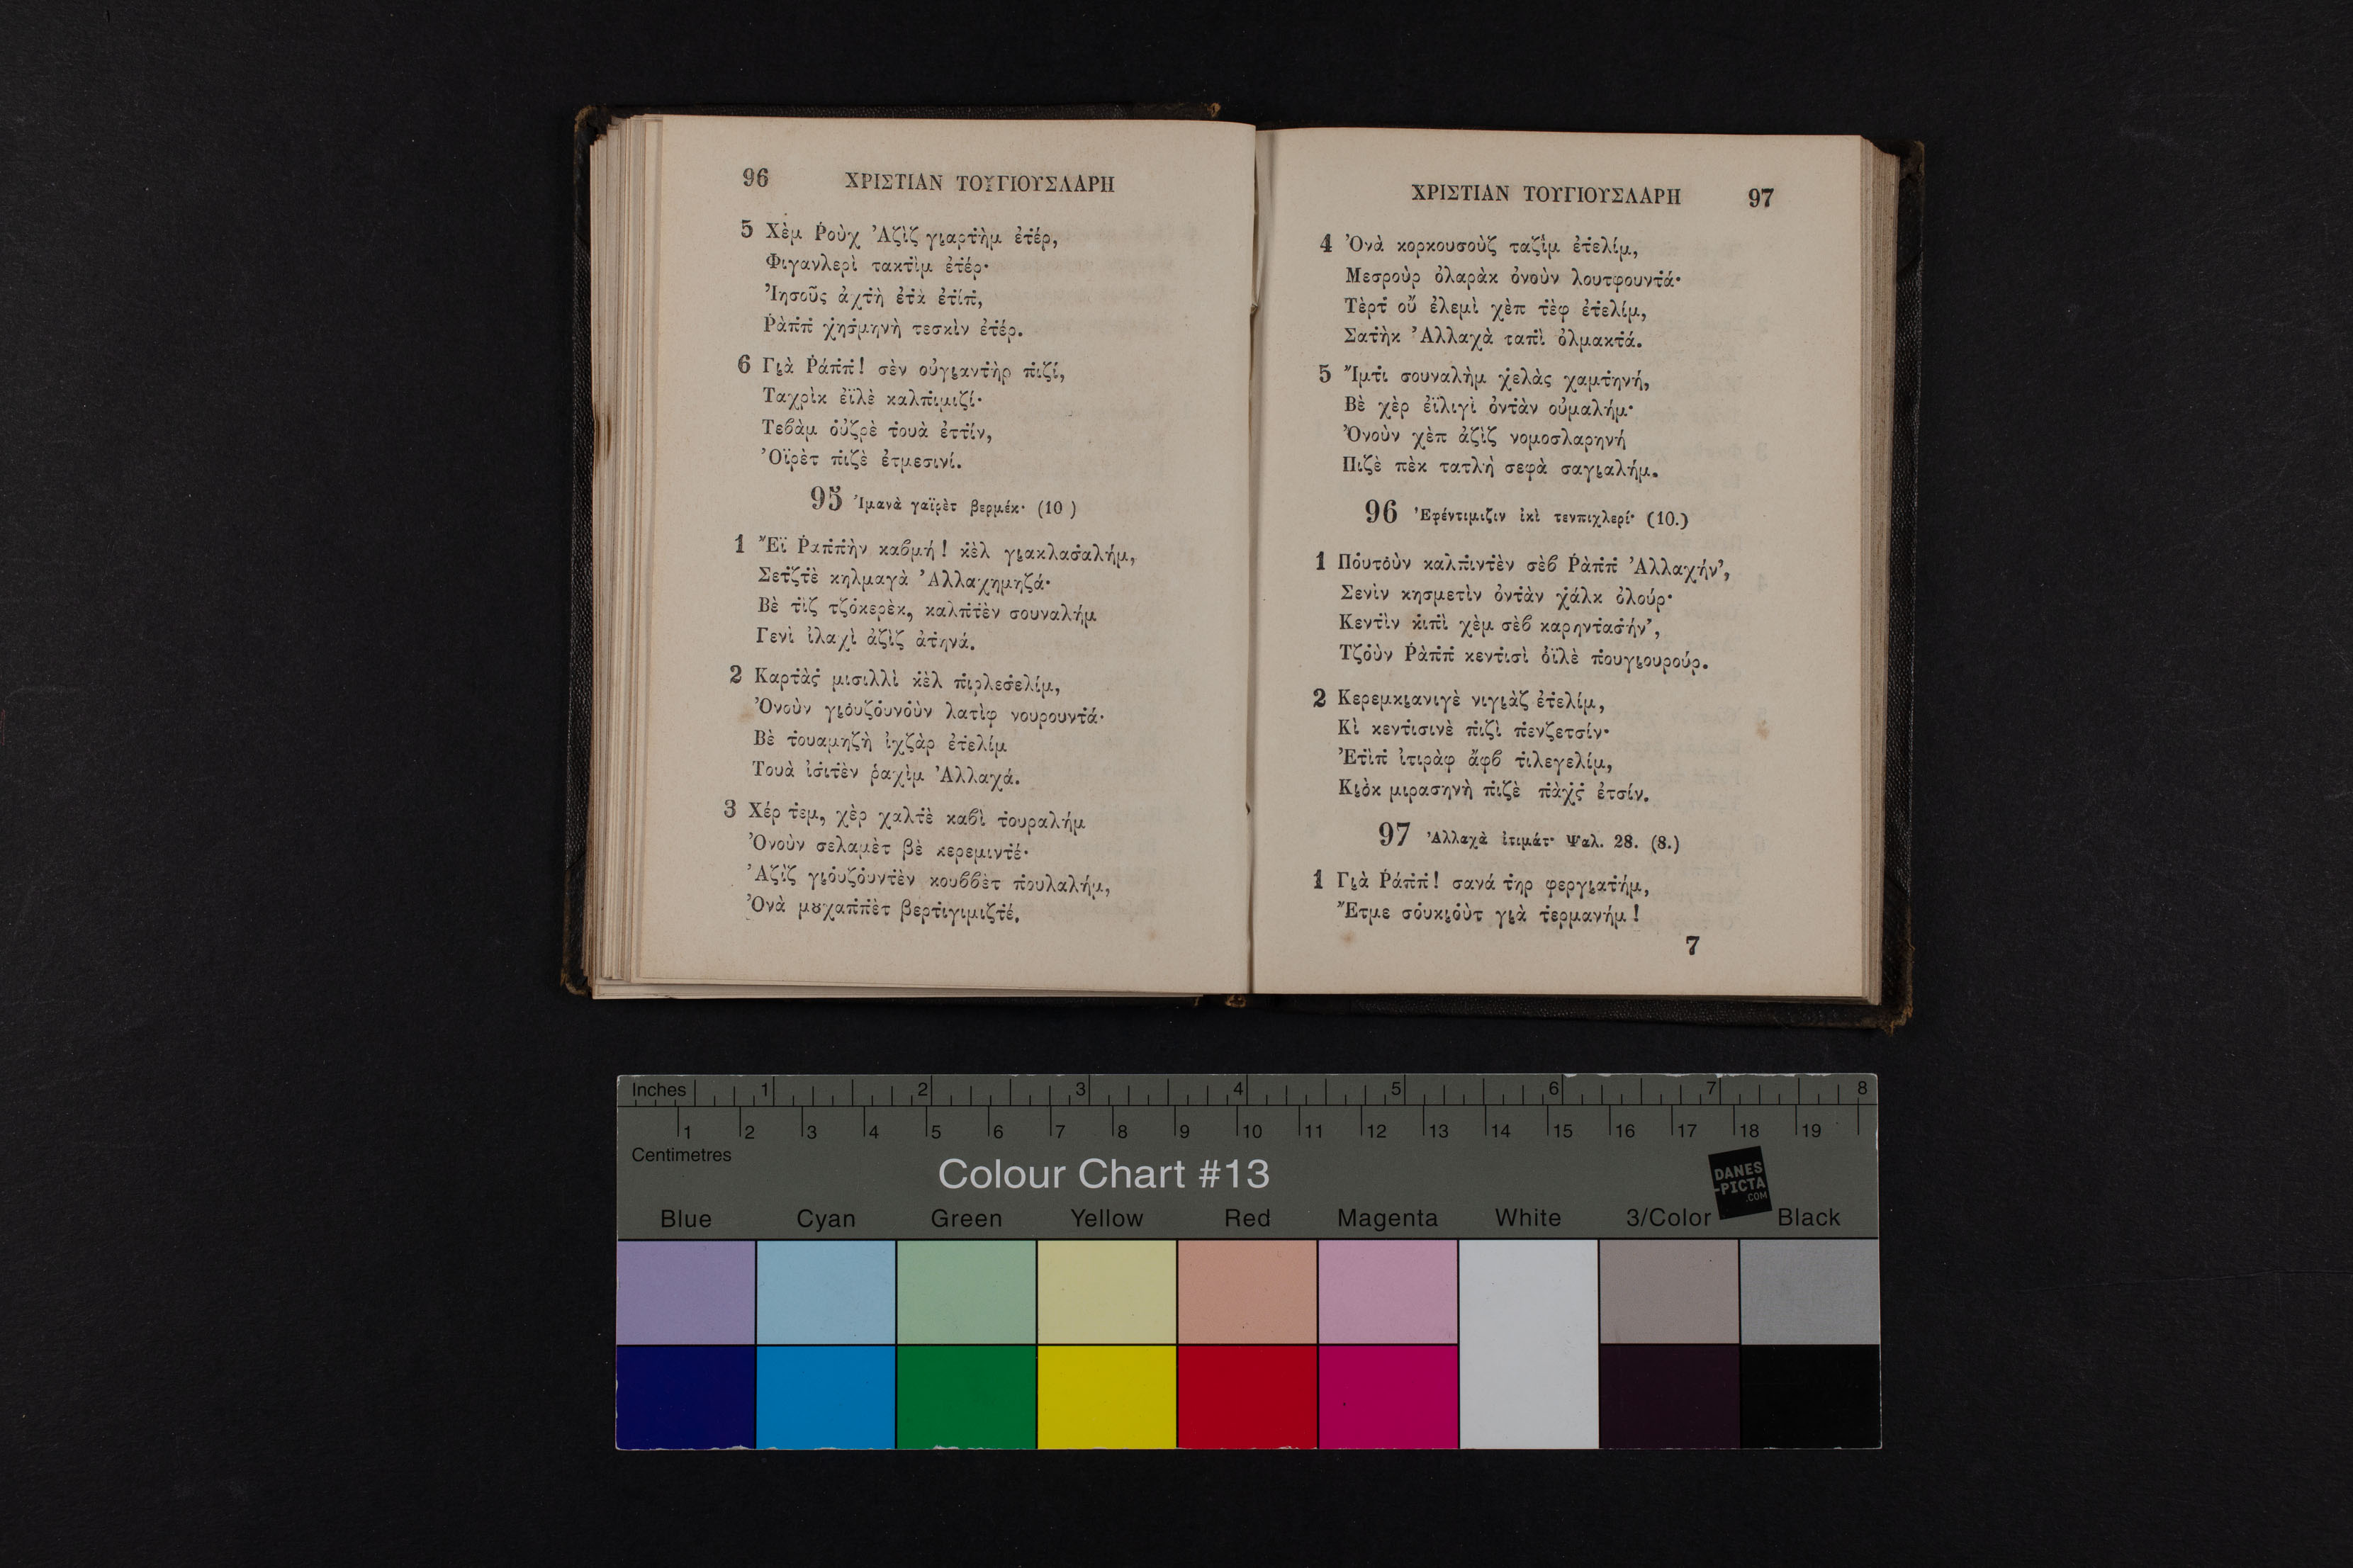 96 ΧΡΙΣΤΙΑΝ ΤΟΥΓΙΟΥΣΛΑΡΗ
5 Χὲμ Ῥοὺχ Ἀζὶζ γι̮αρτ̇ὴμ ἐτ̇έρ,
Φιγανλερὶ τακτ̇ὶμ ἐτ̇έρ·
Ἰησοῦς ἀχτ̇ὴ ἐτ̇ὰ ἐτ̇ίπ̇,
Ῥὰπ̇π̇ χ̇ησ̇μηνὴ τεσκὶν ἐτ̇έρ.
6 Γι̮ὰ Ῥάπ̇π̇! σὲν οὐγι̮αντ̇ὴρ π̇ιζί,
Ταχρὶκ ἐϊλὲ καλπ̇ιμιζί·
Τεϐὰμ ο̇ὐζρὲ τ̇ουὰ ἐττίν,
Ὀϊρὲτ π̇ιζὲ ἐτμεσινί.
95 Ἰμανὰ γαϊρὲτ βερμέκ· (10 )
1 Ἔϊ Ῥαπ̇π̇ὴν καϐμή! κ̇ὲλ γι̮ακλασ̇αλήμ,
Σετ̇ζτ̇ὲ κηλμαγὰ Ἀλλαχημηζά·
Βὲ τ̇ὶζ τζο̇κερὲκ, καλπ̇τ̇ὲν σουναλήμ
Γενὶ ἰλαχὶ ἀζὶζ ἀτ̇ηνά.
2 Καρτ̇ὰσ̇ μισιλλὶ κ̇ὲλ π̇ιρλεσ̇ελίμ,
Ὀνοὺν γι̮ο̇υζο̇υνο̇ὺν λατὶφ νουρουντ̇ά·
Βὲ τ̇ουαμηζὴ ἰχζὰρ ἐτ̇ελίμ
Τουὰ ἰσ̇ιτ̇ὲν ῥαχὶμ Ἀλλαχά.
3 Χέρ τ̇εμ, χὲρ χαλτ̇ὲ καϐὶ τ̇ουραλήμ
Ὀνοὺν σελαμὲτ βὲ κερεμιντ̇έ·
Ἀζὶζ γι̮ο̇υζο̇υντ̇ὲν κουϐϐὲτ π̇ουλαλήμ,
Ὀνὰ μȣχαπ̇π̇ὲτ βερτ̇ιγιμιζτ̇έ.
ΧΡΙΣΤΙΑΝ ΤΟΥΓΙΟΥΣΛΑΡΗ 97
4 Ὀνὰ κορκουσοὺζ ταζὶμ ἐτ̇ελίμ,
Μεσροὺρ ὀλαρὰκ ὀνοὺν λουτφουντ̇ά·
Τὲρτ̇ οὔ ἐλεμὶ χὲπ τ̇ὲφ ἐτ̇ελίμ,
Σατ̇ὴκ Ἀλλαχὰ ταπ̇ὶ ὀλμακτ̇ά.
5 Ἴμτ̇ι σουναλὴμ χ̇ελὰς χαμτ̇ηνή,
Βὲ χὲρ ἐϊλιγὶ ὀντ̇ὰν οὐμαλήμ·
Ὀνοὺν χὲπ ἀζὶζ νομοσλαρηνή
Πιζὲ πὲκ τατλὴ σεφὰ σαγι̮αλήμ.
96 Ἐφέντιμιζιν ἰκὶ τενπιχλερί· (10.)
1 Πο̇υτο̇ὺν καλπ̇ιντ̇ὲν σὲϐ Ῥὰπ̇π̇ Ἀλλαχήν’,
Σενὶν κησμετὶν ὀντ̇ὰν χ̇άλκ ὀλούρ·
Κεντ̇ὶν κ̇ιπ̇ὶ χὲμ σὲϐ καρηντ̇ασ̇ήν’,
Τζο̇ὺν Ῥὰπ̇π̇ κεντ̇ισὶ ο̇ϊλὲ π̇ουγι̮ουρούρ.
2 Κερεμκι̮ανιγὲ νιγι̮ὰζ ἐτ̇ελίμ,
Κὶ κεντ̇ισινὲ π̇ιζὶ π̇ενζετσίν·
Ἐτ̇ὶπ̇ ἰτιρὰφ ἄφϐ τ̇ιλεγελίμ,
Κι̮ο̇κ μιρασηνὴ π̇ιζὲ π̇ὰχσ̇ ἐτσίν.
97 Ἀλλαχὰ ἰτιμάτ· Ψαλ. 28. (8.)
1 Γι̮ὰ Ῥάπ̇π̇! σανά τ̇ηρ φεργι̮ατ̇ήμ,
Ἔτμε σο̇υκι̮ο̇ὺτ γι̮ὰ τ̇ερμανήμ!
7
Inches 1 2 3 4 5 6 7 8
1 2 3 4 5 6 7 8 9 10 11 12 13 14 15 16 17 18 19
Centimetres
Colour Chart #13
DANES
-PICTA
.COM
Blue Cyan Green Yellow Red Magenta White 3/Color Black